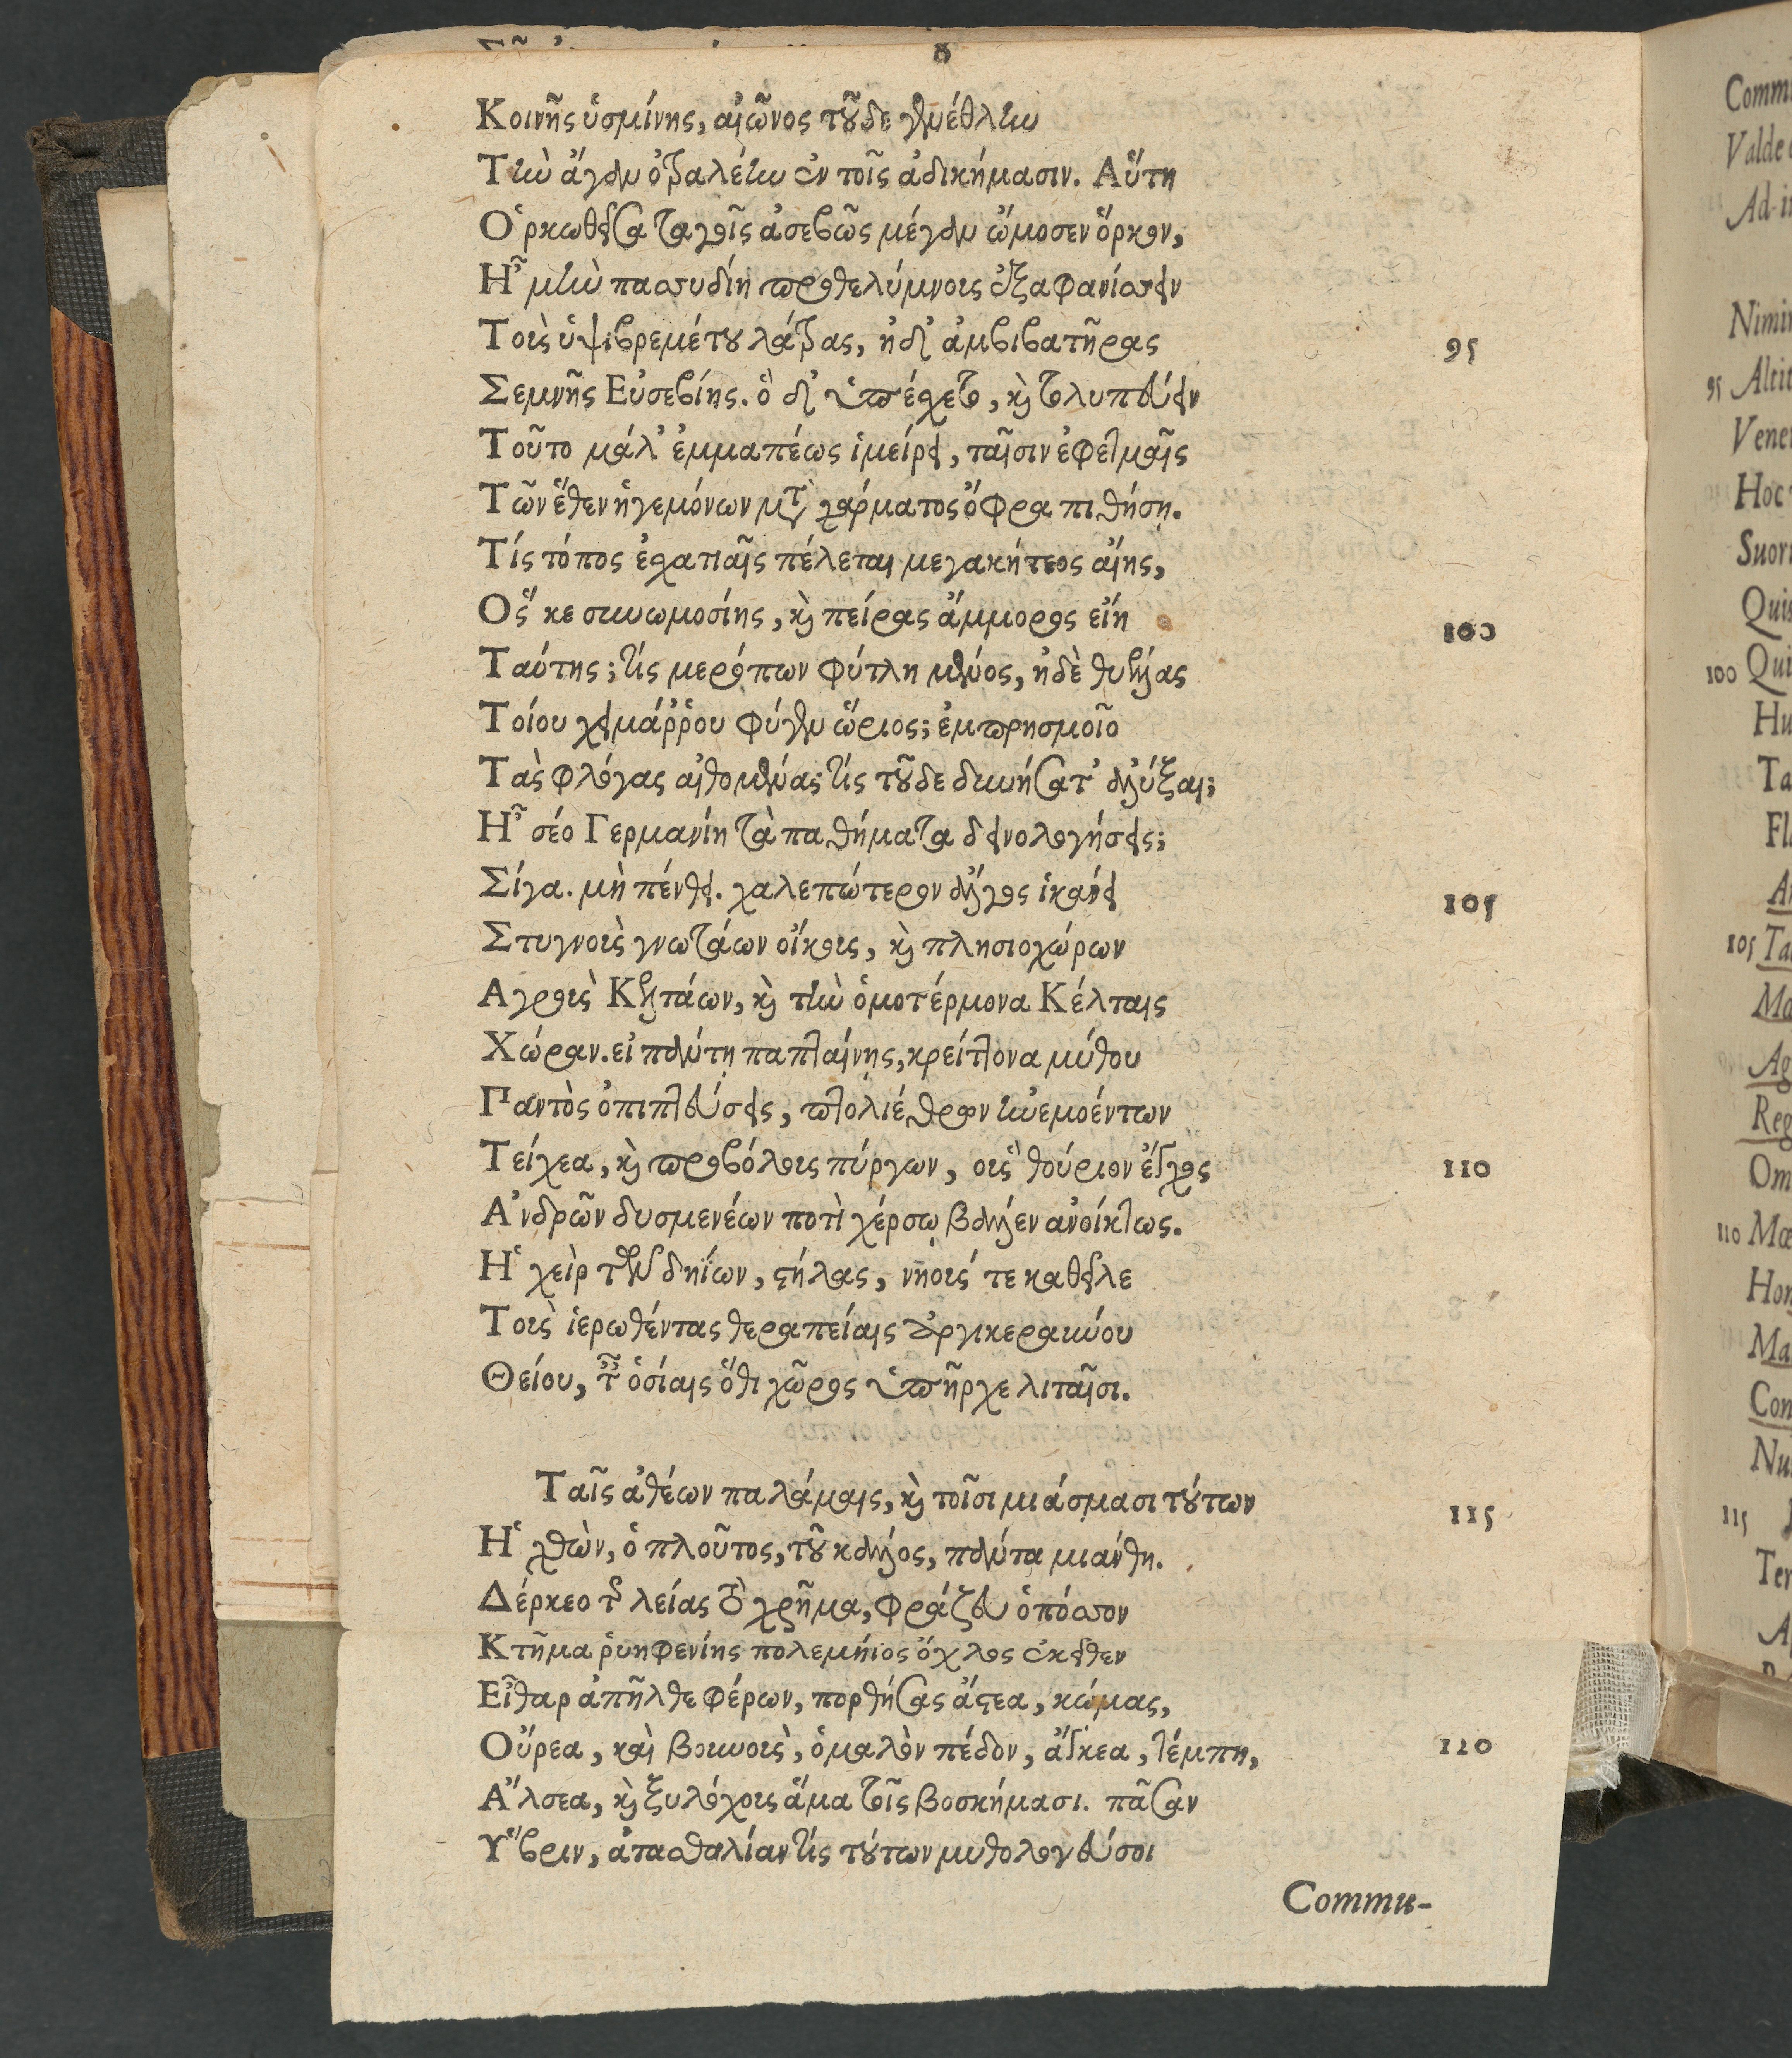 8
Κοινῆς ὑσμίνης, αἰῶνος τοῦδε γενέθλην
Τὴν ἄγαν ὀβραλέην ἐν τοῖς ἀδικήμασιν. Αὕτη
Ὁρκωθεῖσα ταγοῖς ἀσεβῶς μέγαν ὤμοσεν ὅρκον,
Ἦ μὴν πασσυδίη προθελύμνους ἐξαφανίσσειν
Τοὺς ὑψιβρεμέτου λάτρας, ἠδ᾽ ἀμβιβατῆρας
95
Σεμνῆς Εὐσεβίης. ὃ δ᾽ ὑπέχετο, καὶ
Τοῦτο μάλ᾽ ἐμμαπέως ἱμείρει, ταῖσιν ἐφετμαῖς
Τῶν ἕθεν ἡγεμόνων μετὰ χάρματος ὄφρα πιθήσῃ.
Τίς τόπος ἐσχατιαῖς πέλεται μεγακήτεος αἴης,
Ὅς κε συνωμοσίης, καὶ πείρας ἄμμορος εἴη
100
Ταύτης; τίς μερόπων φύτλη μένος, ἠδὲ θυέλλας
Τοίου χειμάῤῥου φύγεν ὥριος; ἐμπρησμοῖο
Τὰς φλόγας αἰθομένας τίς τοῦδε δυνήσατ᾽ ἀλύξαι;
Ἦ σέο Γερμανίη τὰ παθήματα δεινολογήσεις;
Σίγα. μὴ πένθει. χαλεπώτερον ἄλγος ἱκάνει
105
Στυγνοὺς γνωτάων οἴκους, καὶ πλησιοχώρων
Αγροὺς Κελτάων, καὶ τὴν ὁμοτέρμονα Κέλταις
Χώραν. εἰ πάντῃ παπταίνῃς, κρείττονα μύθου
Παντὸς ὀπιπτεύσεις, πτολιέθρων ἠνεμοέντων
Τείχεα, καὶ προβόλους πύργων, οὓς θούριον ἔγχος
110
Ἀνδρῶν δυσμενέων ποτὶ χέρσῳ βάλλεν ἀνοίκτως.
Ἡ χεὶρ τῶν δηΐων, στήλας, νηούς τε καθεῖλε
Τοὺς ἱερωθέντας θεραπείαις ἀργικεραύνου
Θείου, τῆς ὁσίαις ὅθι χῶρος ὑπῆρχε λιταῖσι.
Ταῖς ἀθέων παλάμαις, καὶ τοῖσι μιάσμασι τούτων
115
Ἡ χθὼν, ὁ πλοῦτος, τοῦ κάλλος, πάντα μιάνθη.
Δέρκεο τῆς λείας τὸ χρῆμα, φράζευ ὁπόσσον
Κτῆμα ῥυηφενίης πολεμήϊος ὄχλος ἐκεῖθεν
Εἶθαρ ἀπῆλθε φέρων, πορθήσας ἄστεα, κώμας,
Οὔρεα, καὶ βουνοὺς, ὁμαλὸν πέδον, ἄγκεα, τέμπη,
120
Ἄλσεα, καὶ ξυλόχους ἅμα τοῖς βοσκήμασι. πᾶσαν
Ὕβριν, ἀτασθαλίαν τίς τούτων μυθολογεύσοι
Commu-
Commu
Valde
Ad-i
Nimi
95 Altit
Vene
Hoc
Suor
Quis
100 Qui
Hu
Ta
Fl
A
105 Ta
Ma
Ag
Reg
Om
110 Mœ
Hon
Ma
Con
Nu
115
Ter
A